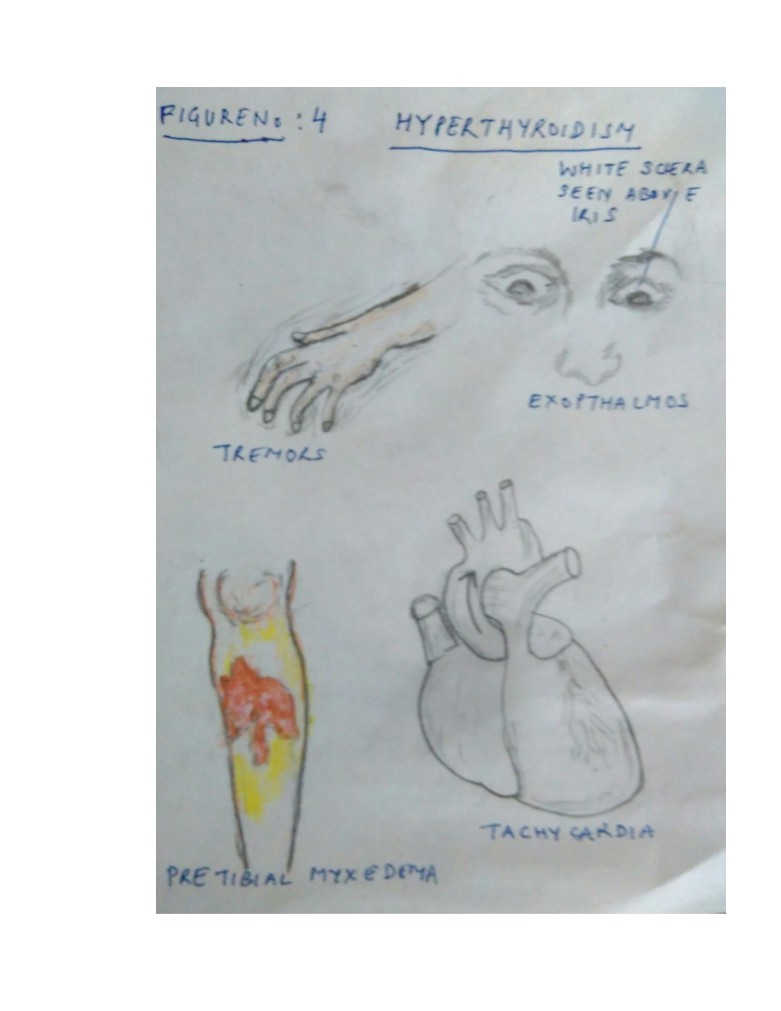 FIGURE No : 4
HYPERTHYROIDISM
WHITE SCLERA
SEEN ABOVE
IRIS
EXOPTHALMOS
TREMORS
TACHYCARDIA
PRETIBIAL MYXEDEMA